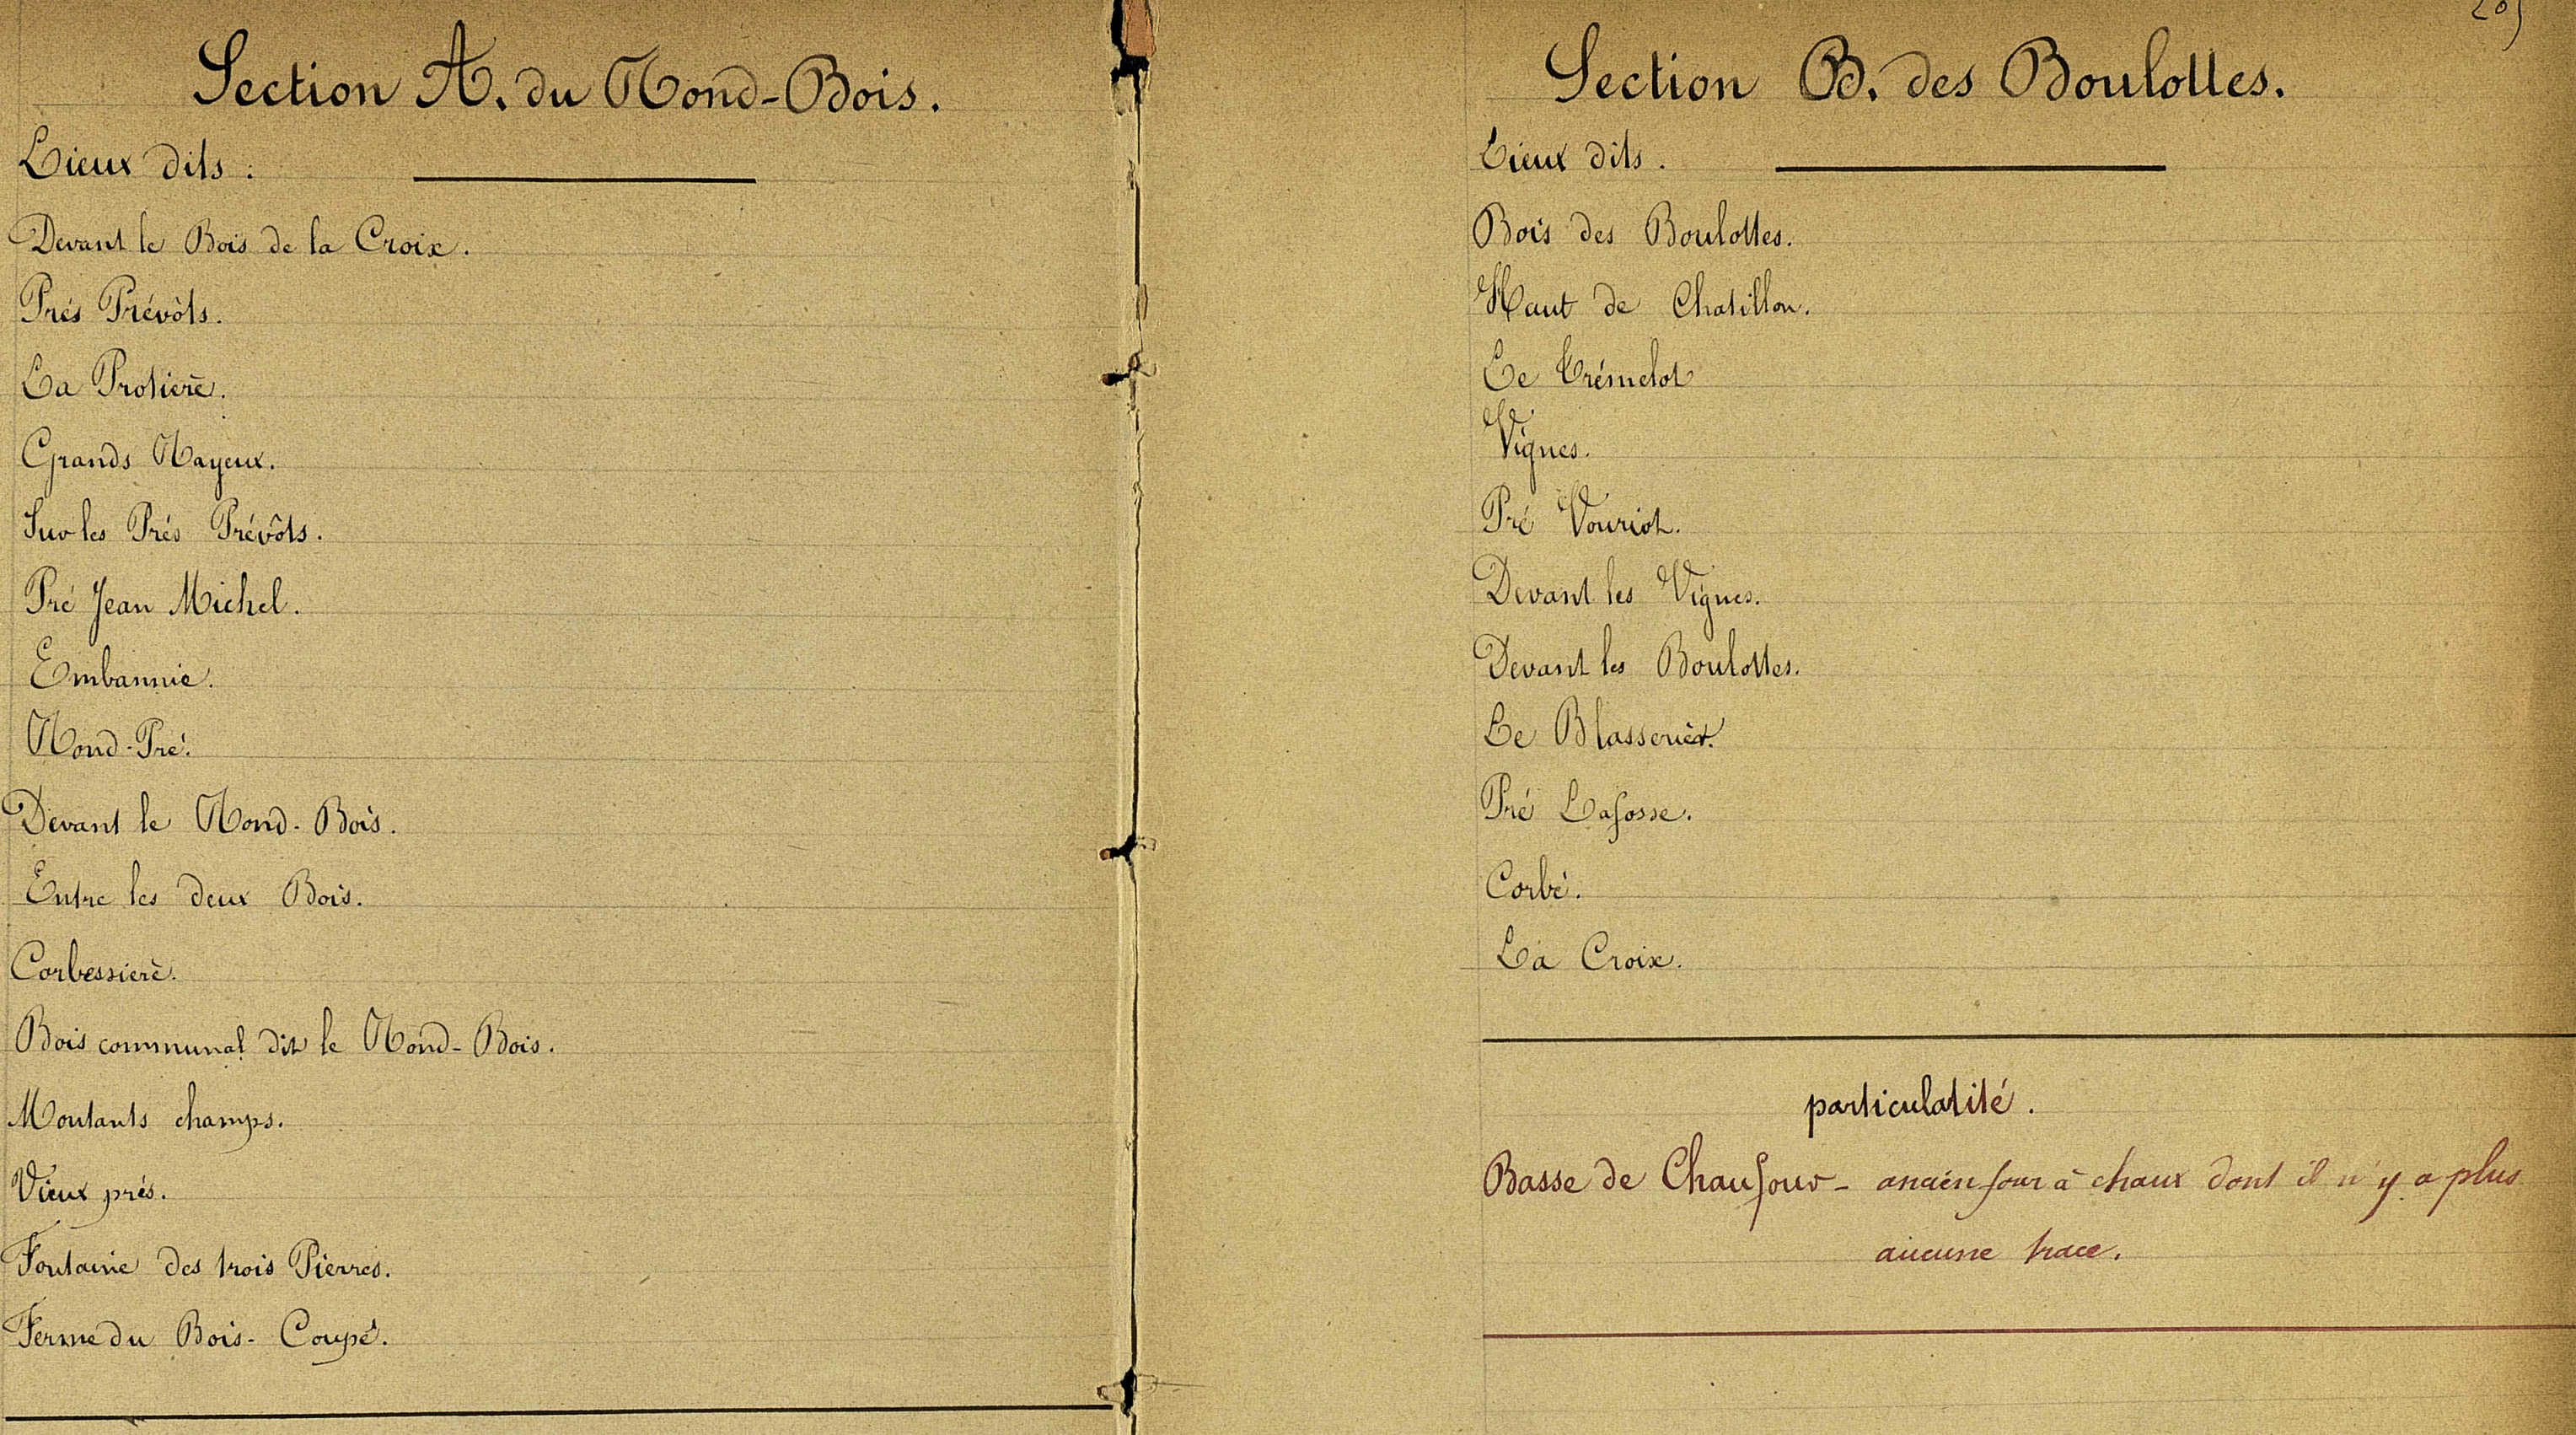 Section A. du Rond-Bois.
Lieux dits :
Devant le Bois de la Croix.
Prés Prévôts.
La Protière.
Grands Rayeux.
Sur les Prés Prévôts.
Pré Jean Michel.
Embannie.
Rond-Pré.
Devant le Rond-Bois.
Entre les deux Bois.
Corbessière.
Bois communal dit le Rond-Bois.
Moutants champs.
Vieux prés.
Fontaine des trois Pierres.
Ferme du Bois-Coupé.
Section B. des Boulottes.
Lieux dits.
Bois des Boulottes.
Haut de Chatillon.
Le Trémelot
Vignes.
Pré Vouriot.
Devant les Vignes.
Devant les Boulottes.
Le
Pré Lafosse.
Corbé.
La Croix.
particulatité.
Basse de Chaufour - ancien four à chaux dont il n'y a plus
aucune trace.